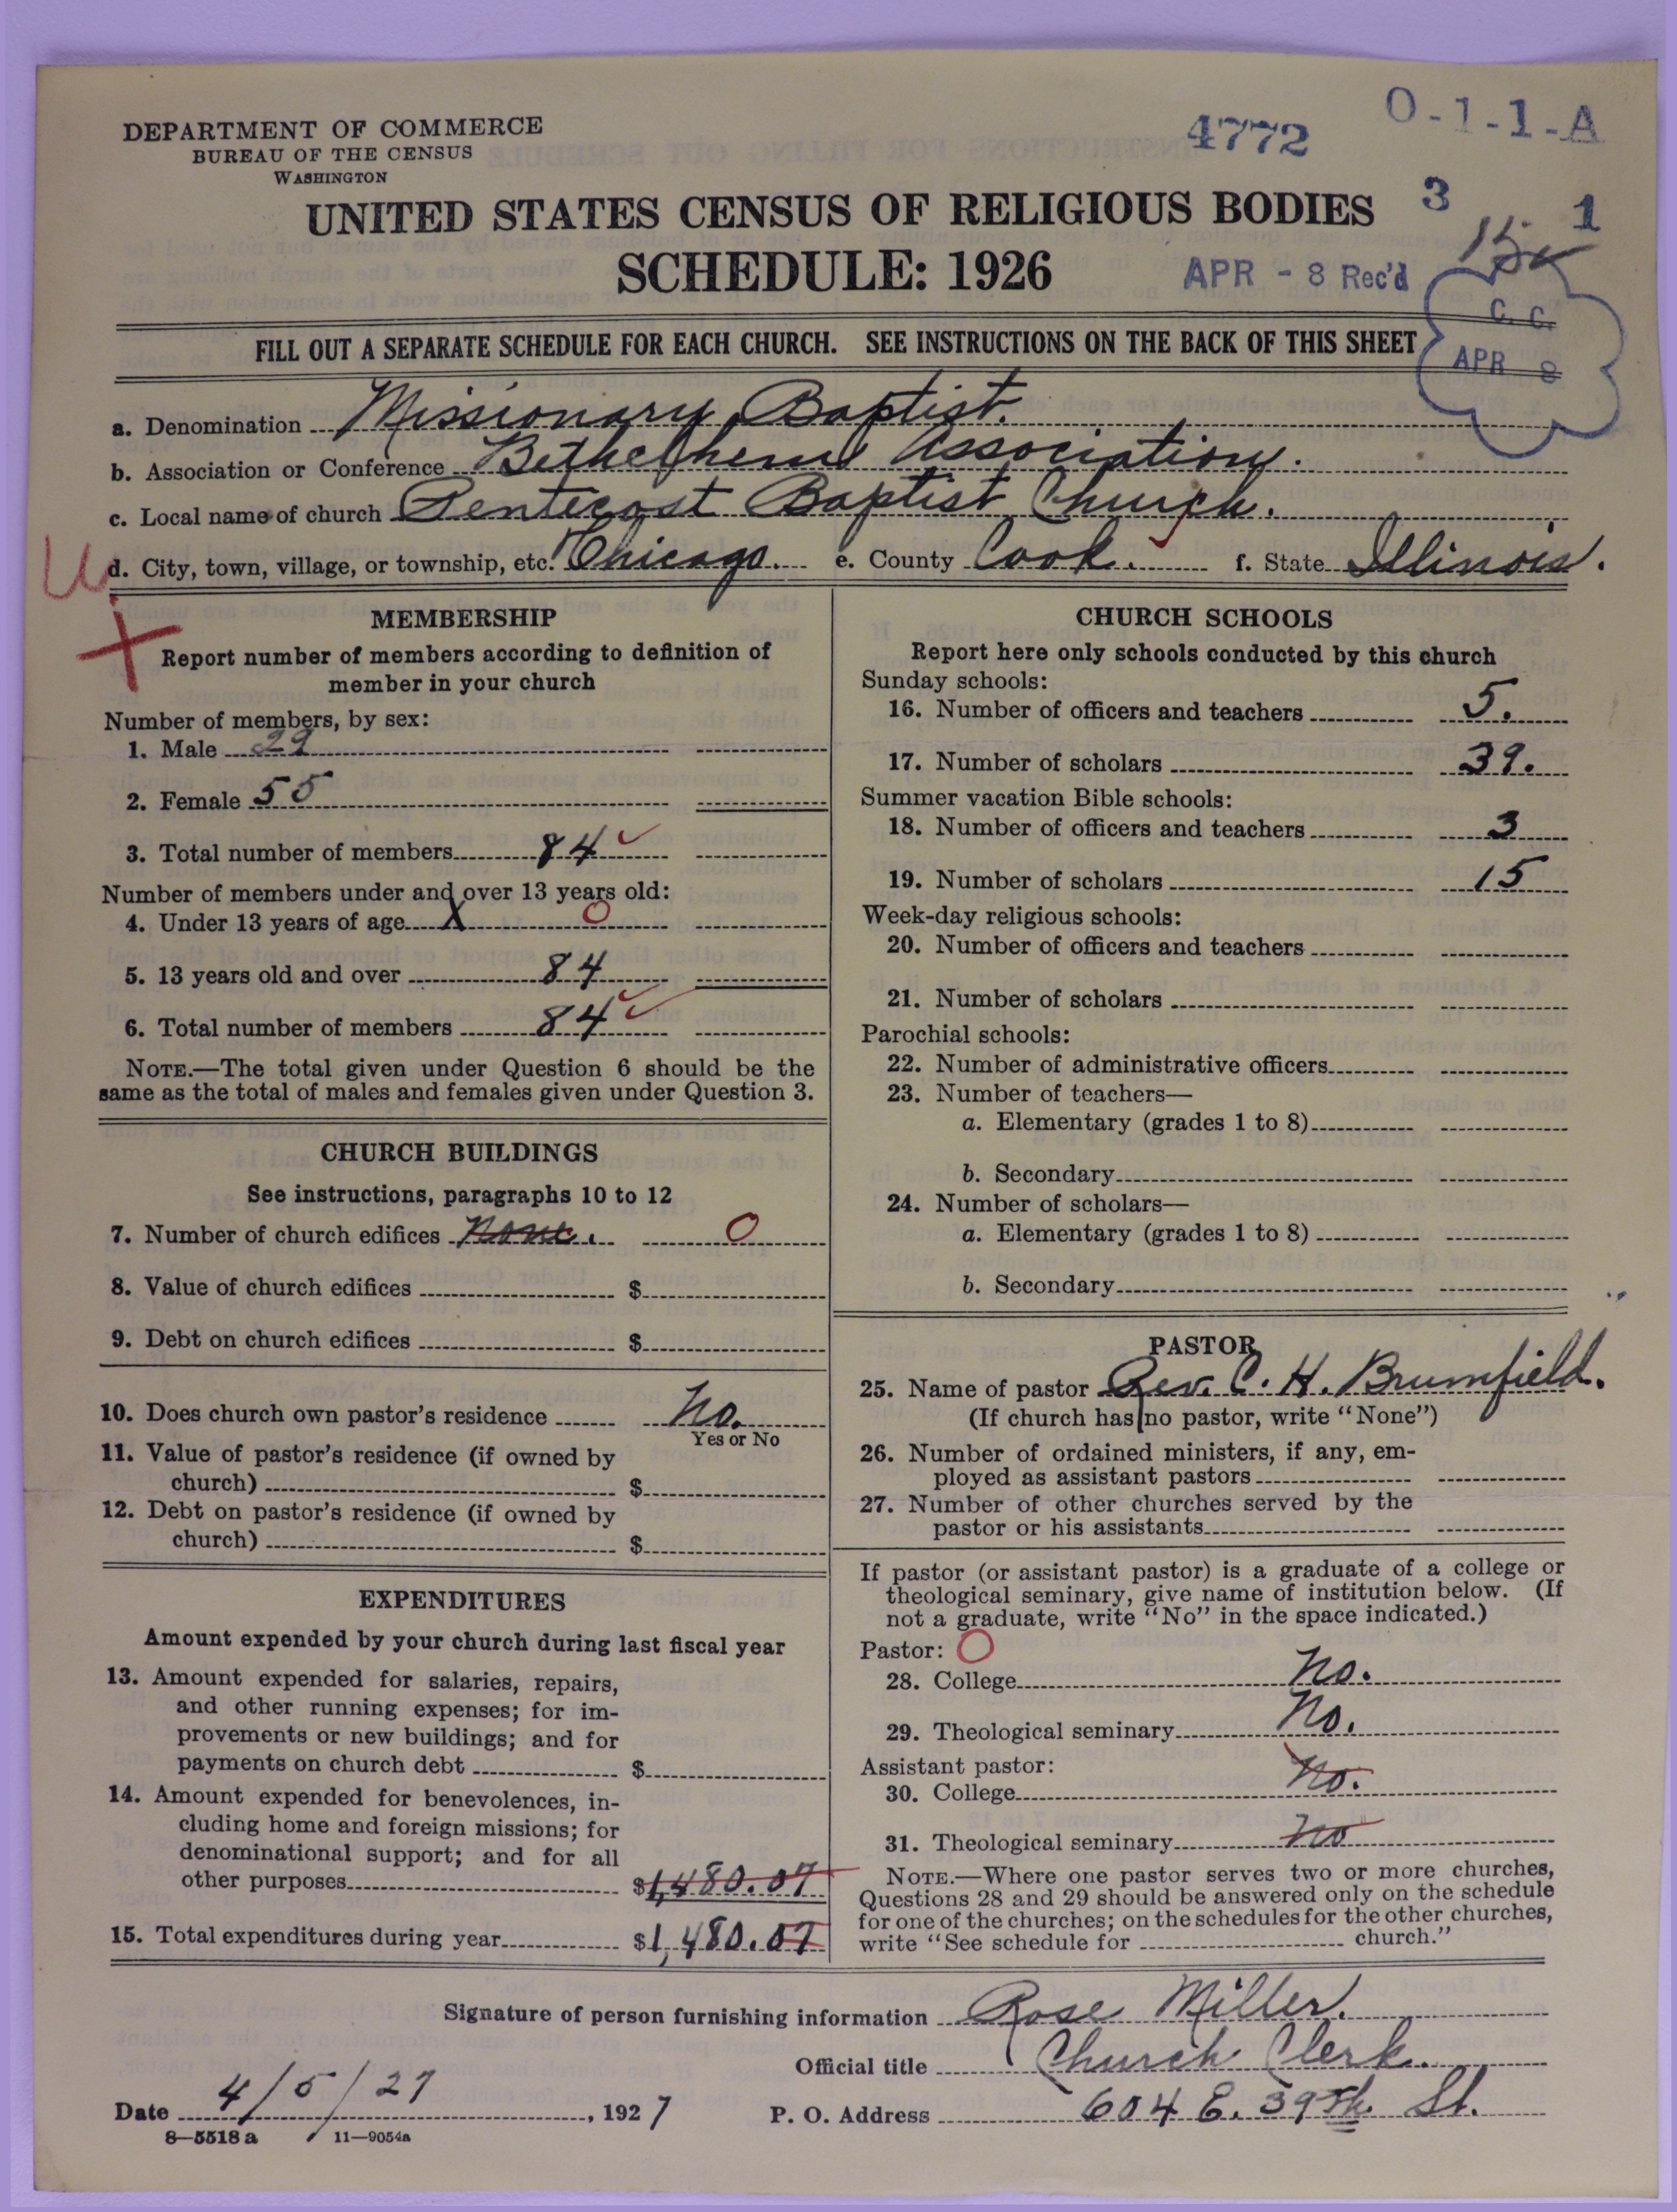 DEPARTMENT OF COMMERCE
BUREAU OF THE CENSUS
WASHINGTON
4772
O-1-1-A
UNITED STATES CENSUS OF RELIGIOUS BODIES
3
1
SCHEDULE: 1926
APR - 8 Rec'd
C. C.
APR 8
FILL OUT A SEPARATE SCHEDULE FOR EACH CHURCH. SEE INSTRUCTIONS ON THE BACK OF THIS SHEET
a. Denomination Missionary Baptist.
b. Association or Conference Bethelhem Association.
c. Local name of church Pentecost Baptist Church.
d. City, town, village, or township, etc. Chicago. e. County Cook. f. State Illinois.
MEMBERSHIP
Report number of members according to definition of
member in your church
Number of members, by sex:
1. Male 29
2. Female 55
3. Total number of members 84
Number of members under and over 13 years old:
4. Under 13 years of age X 0
5. 13 years old and over 84
6. Total number of members 84
NOTE.—The total given under Question 6 should be the
same as the total of males and females given under Question 3.
CHURCH BUILDINGS
See instructions, paragraphs 10 to 12
7. Number of church edifices None. 0
8. Value of church edifices $
9. Debt on church edifices $
10. Does church own pastor's residence No.
Yes or No
11. Value of pastor's residence (if owned by
church) $
12. Debt on pastor's residence (if owned by
church) $
EXPENDITURES
Amount expended by your church during last fiscal year
13. Amount expended for salaries, repairs,
and other running expenses; for im-
provements or new buildings; and for
payments on church debt $
14. Amount expended for benevolences, in-
cluding home and foreign missions; for
denominational support; and for all
other purposes $1,480.07
15. Total expenditures during year $1,480.07
CHURCH SCHOOLS
Report here only schools conducted by this church
Sunday schools:
16. Number of officers and teachers 5.
17. Number of scholars 39.
Summer vacation Bible schools:
18. Number of officers and teachers 3
19. Number of scholars 15
Week-day religious schools:
20. Number of officers and teachers
21. Number of scholars
Parochial schools:
22. Number of administrative officers
23. Number of teachers—
a. Elementary (grades 1 to 8)
b. Secondary
24. Number of scholars—
a. Elementary (grades 1 to 8)
b. Secondary
PASTOR
25. Name of pastor Rev. C. H. Brumfield.
(If church has no pastor, write "None")
26. Number of ordained ministers, if any, em-
ployed as assistant pastors
27. Number of other churches served by the
pastor or his assistants
If pastor (or assistant pastor) is a graduate of a college or
theological seminary, give name of institution below. (If
not a graduate, write "No" in the space indicated.)
Pastor: O
28. College No.
29. Theological seminary No.
Assistant pastor:
30. College No.
31. Theological seminary No
NOTE.—Where one pastor serves two or more churches,
Questions 28 and 29 should be answered only on the schedule
for one of the churches; on the schedules for the other churches,
write "See schedule for church."
Signature of person furnishing information Rose Miller.
Official title Church Clerk.
Date 4/5/27, 1927 P. O. Address 604 E. 39th. St.
8—5518a 11—9054a